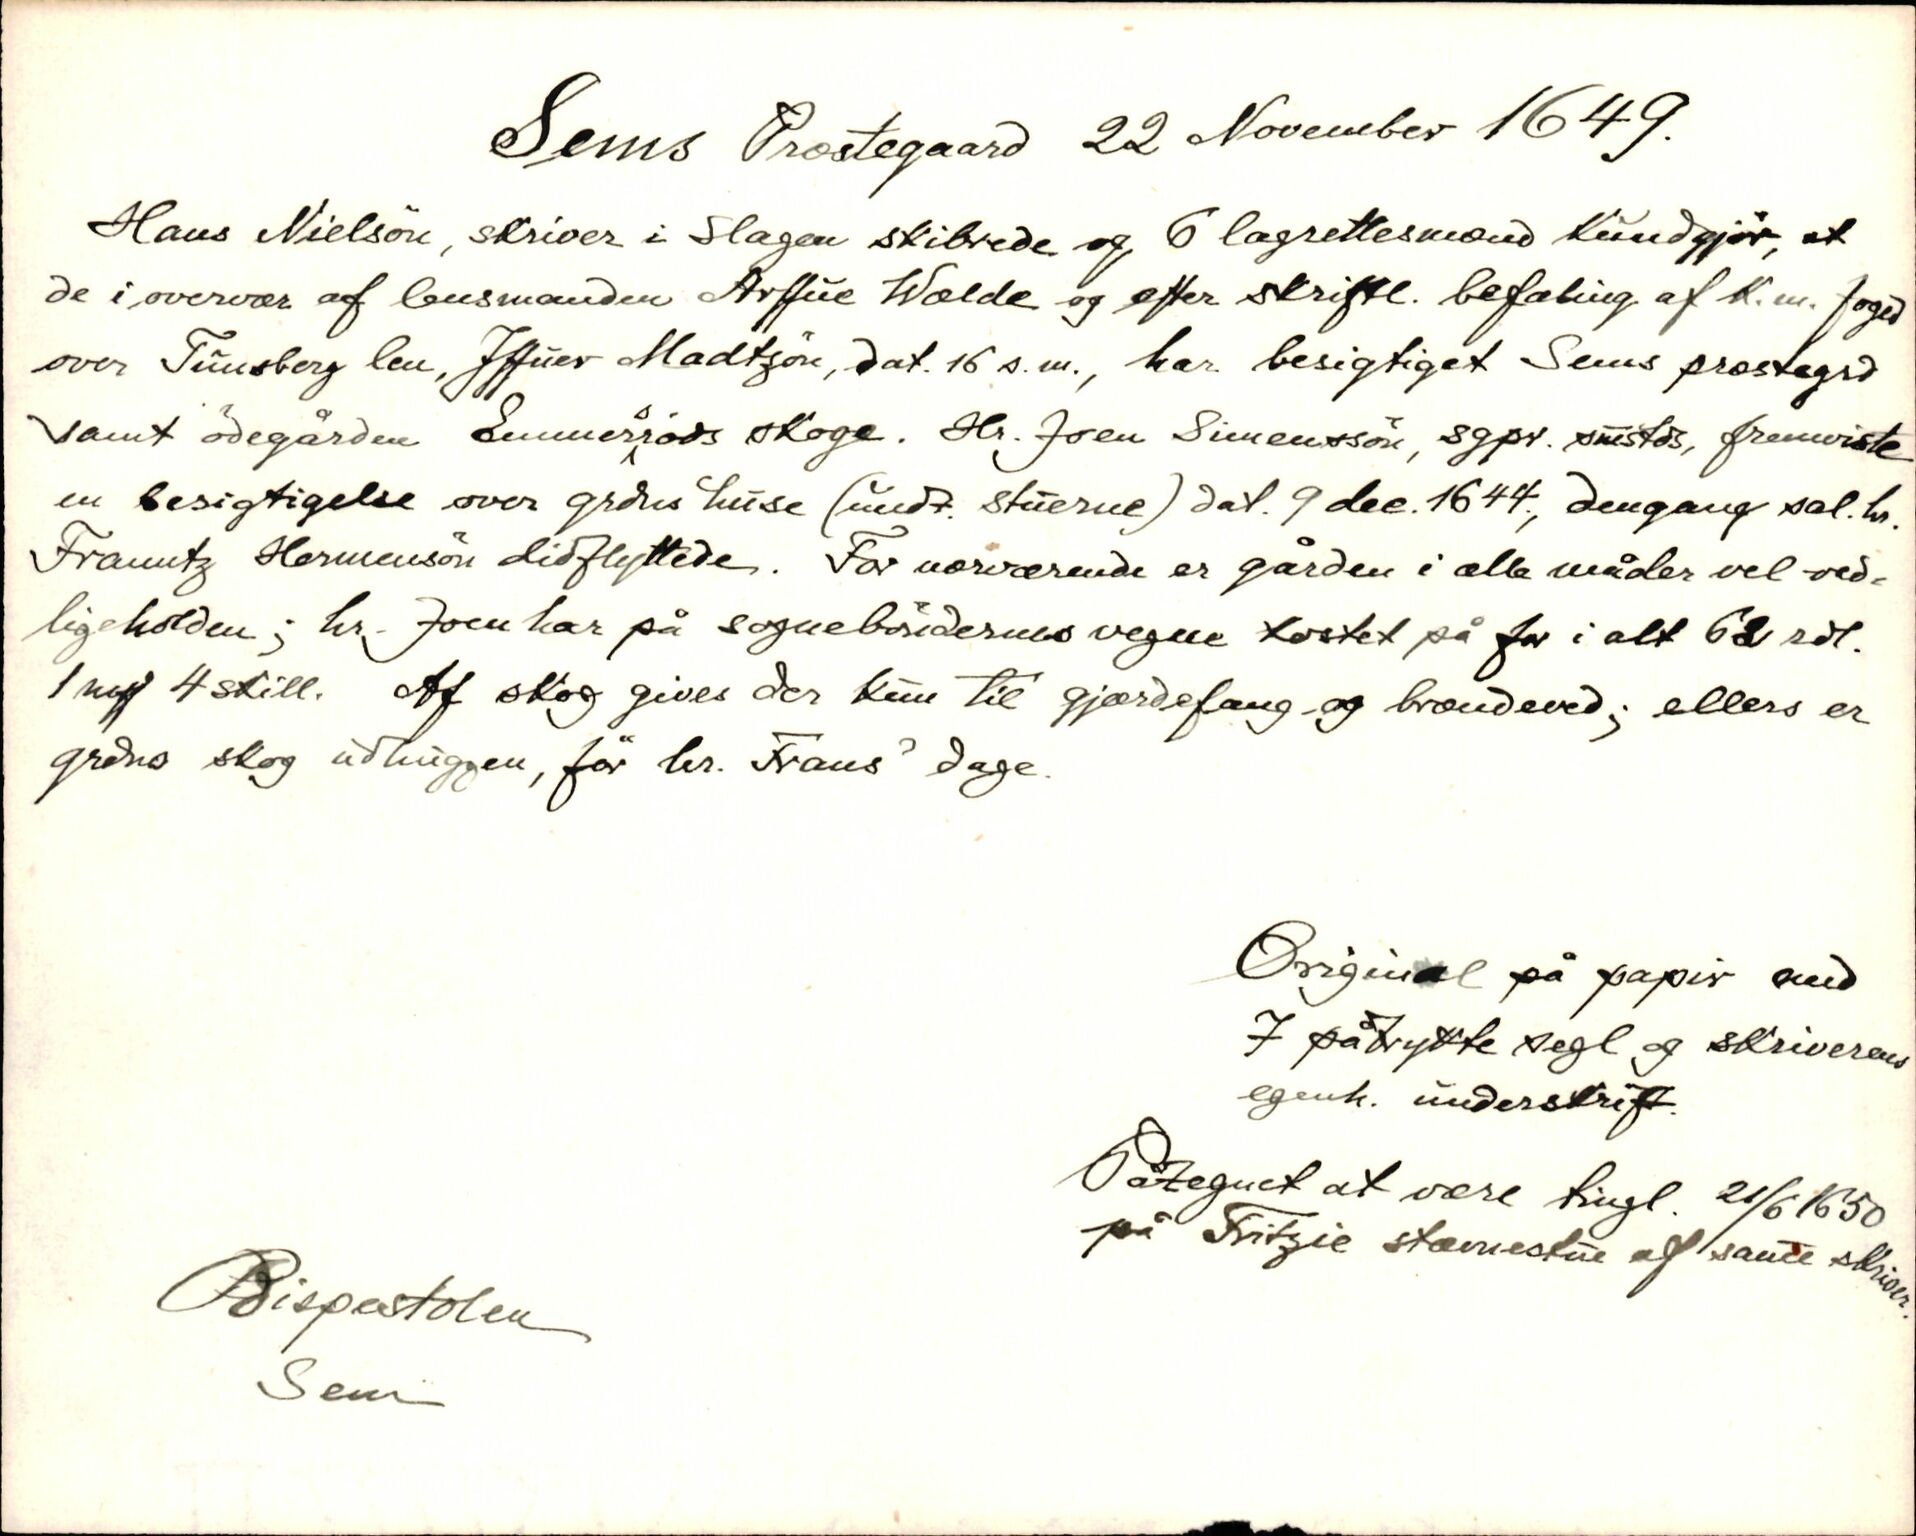 Sems Præstegaard 22 November 1649.
Hans Nielsön, skriver i Slagen skibrede og 6 lagrettesmænd kundgjör, at
de i overvær af lensmanden Arffue Wælde og efter skriftl. befaling af K. m. foged
over Tunsberg len, Iffuer Madtzön, dat. 16 s. m., har besigtiget Sems præstegrd
samt ödegården skoge. Hr. Joen Simenssön, sgpr. smstds, fremviste
en besigtigelse over grdns huse (undt. stuerne) dat. 9 dec. 1644, dengang sal. hr.
Franntz Hermensön didflyttede. For nærværende er gården i alle måder vel ved-
ligeholden; hr. Joen har på sognebönderns vegne kostet på for i alt 62 rdl.
1 4 skill. Af skog gives der kun til gjærdefang og brændeved; ellers er
grdns skog udhuggen, för hr. Frans' dage.
Original på papir med
7 påtrykte segl og skriverens
egenh. underskrift.
Påtegnet at være tingl. 21/6 1650
på Fritzie stævnestue af samme skriver.
Bispestolen
Sem